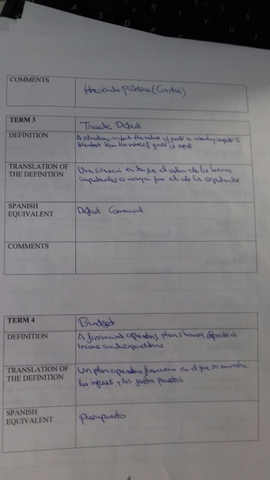 COMMENTS Hacienda Pública (Centra)
TERM 3 Trade Deficit
DEFINITION A situation in which the value of goods a country imports is
greatest than the value of goods it exports
TRANSLATION OF Una situación en la que el valor de los bienes
THE DEFINITION importados es mayor que el de los exportados
SPANISH Déficit Comercial
EQUIVALENT
COMMENTS
TERM 4 Budget
DEFINITION A financial operating plan showing expected
income and expenditure
TRANSLATION OF Un plan operativo financiero en el que se muestra
THE DEFINITION los ingresos y los gastos previstos
SPANISH Presupuesto
EQUIVALENT